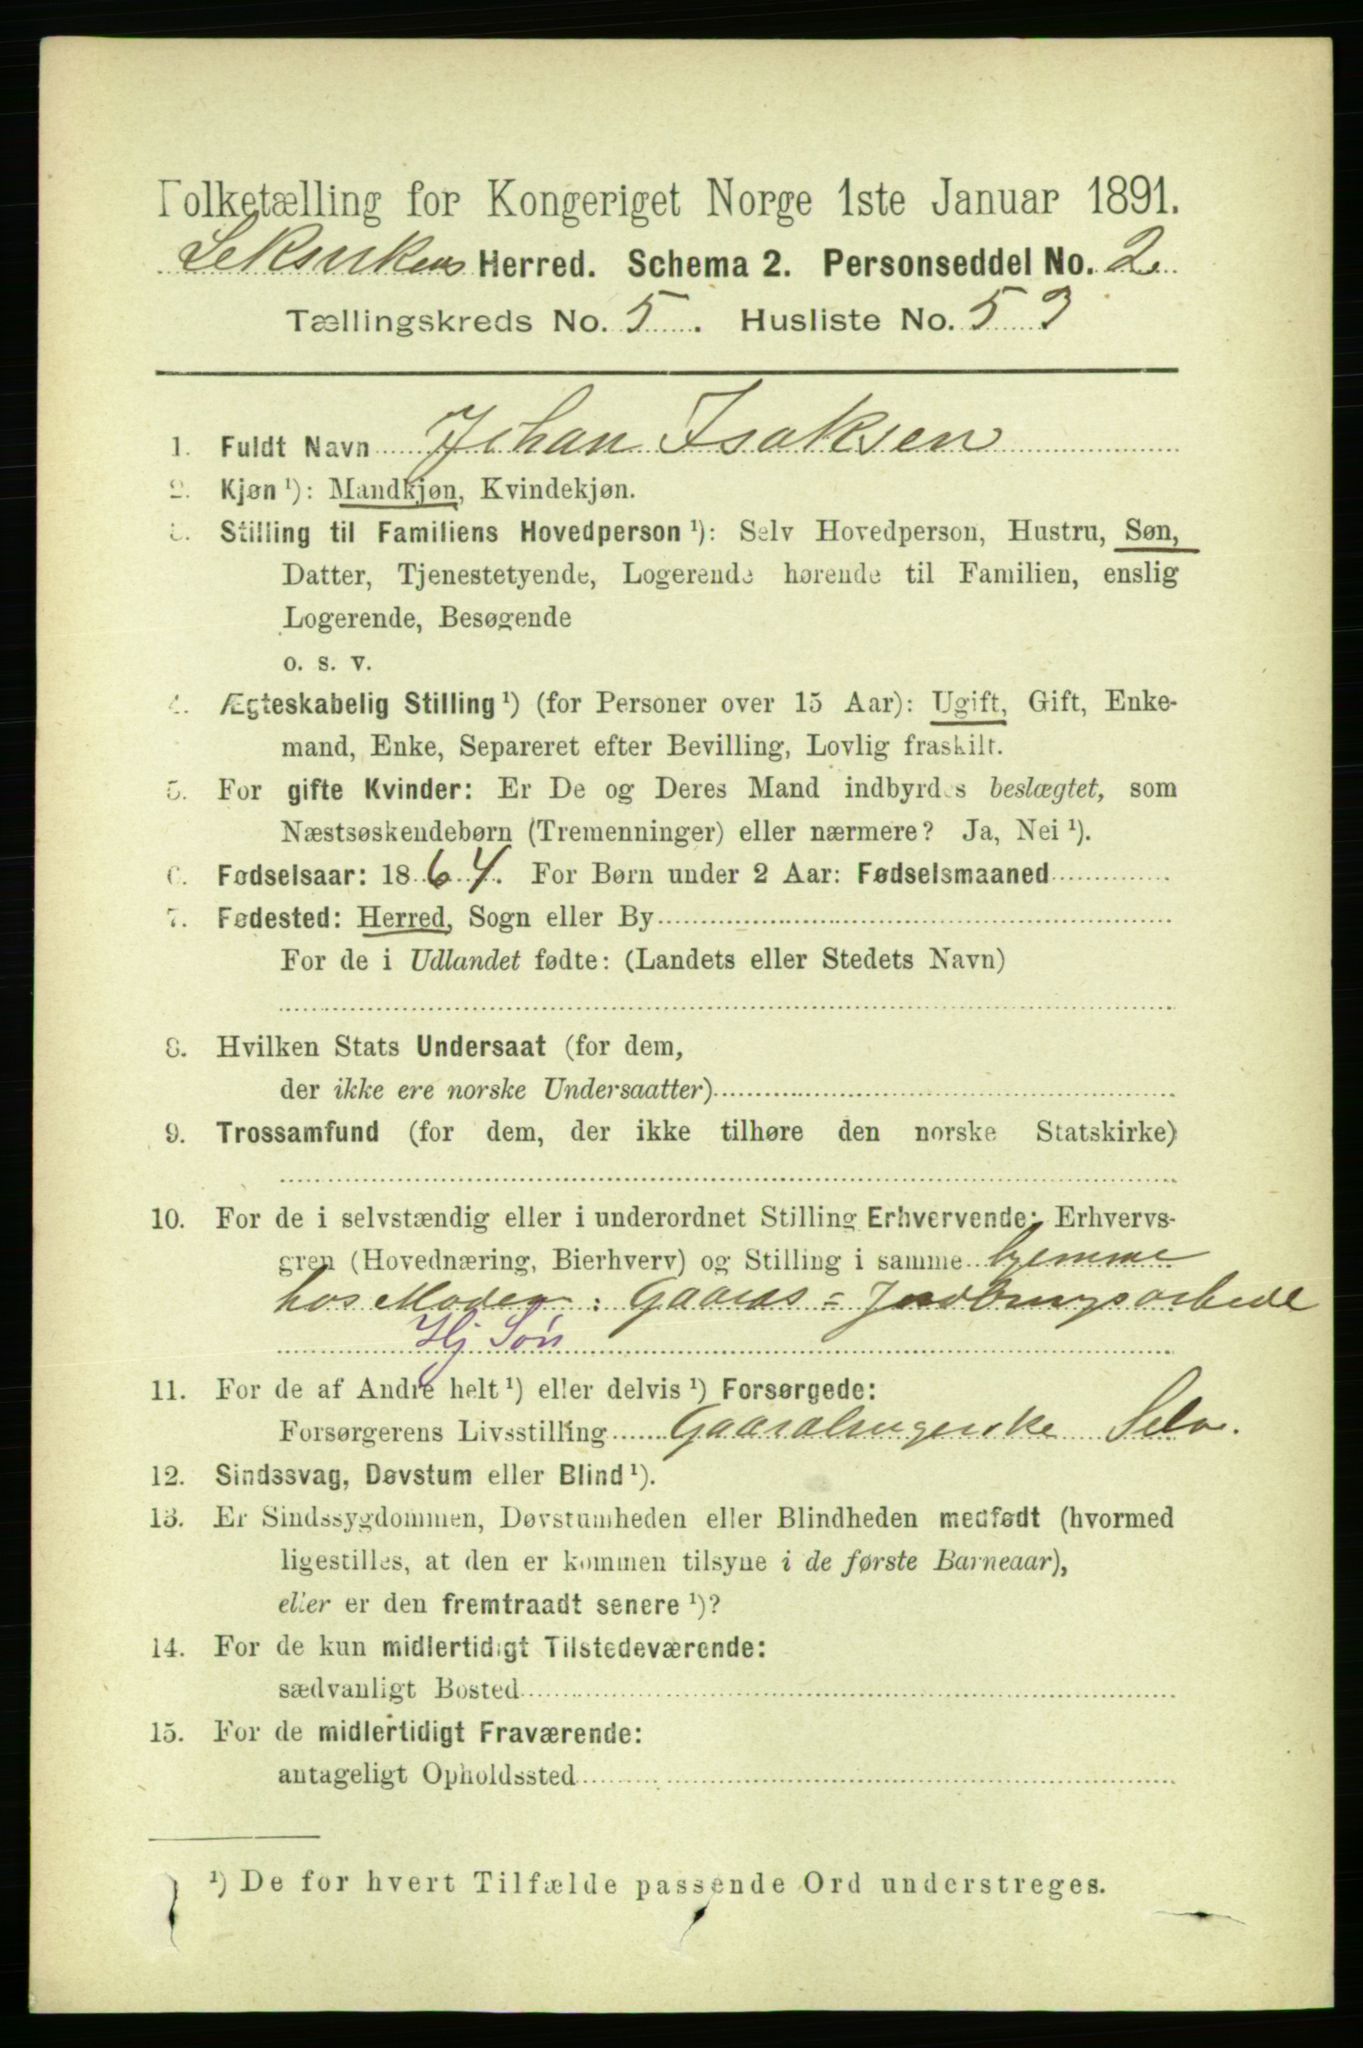 Folketælling for Kongeriget Norge 1ste Januar 1891.
Leksvikens Herred. Schema 2. Personseddel No. 2
Tællingskreds No. 5. Husliste No. 53
1. Fuldt Navn Johan Isaksen
2. Kjøn ¹): Mandkjøn, Kvindekjøn.
3. Stilling til Familiens Hovedperson ¹): Selv Hovedperson, Hustru, Søn,
Datter, Tjenestetyende, Logerende hørende til Familien, enslig
Logerende, Besøgende
o. s. v.
4. Ægteskabelig Stilling ¹) (for Personer over 15 Aar): Ugift, Gift, Enke-
mand, Enke, Separeret efter Bevilling, Lovlig fraskilt.
5. For gifte Kvinder: Er De og Deres Mand indbyrdes beslægtet, som
Næstsøskendebørn (Tremenninger) eller nærmere? Ja, Nei ¹).
6. Fødselsaar: 1864. For Børn under 2 Aar: Fødselsmaaned
7. Fødested: Herred, Sogn eller By
For de i Udlandet fødte: (Landets eller Stedets Navn)
8. Hvilken Stats Undersaat (for dem,
der ikke ere norske Undersaatter)
9. Trossamfund (for dem, der ikke tilhøre den norske Statskirke)
10. For de i selvstændig eller i underordnet Stilling Erhvervende: Erhvervs-
gren (Hovednæring, Bierhverv) og Stilling i samme hjemme
hos Moder: Gaards = Jordbrugsarbeide
Hj Søn
11. For de af Andre helt ¹) eller delvis ¹) Forsørgede:
Forsørgerens Livsstilling Gaardbrugerske Selv.
12. Sindssvag, Døvstum eller Blind ¹).
13. Er Sindssygdommen, Døvstumheden eller Blindheden medfødt (hvormed
ligestilles, at den er kommen tilsyne i de første Barneaar),
eller er den fremtraadt senere ¹)?
14. For de kun midlertidigt Tilstedeværende:
sædvanligt Bosted
15. For de midlertidigt Fraværende:
antageligt Opholdssted
¹) De for hvert Tilfælde passende Ord understreges.